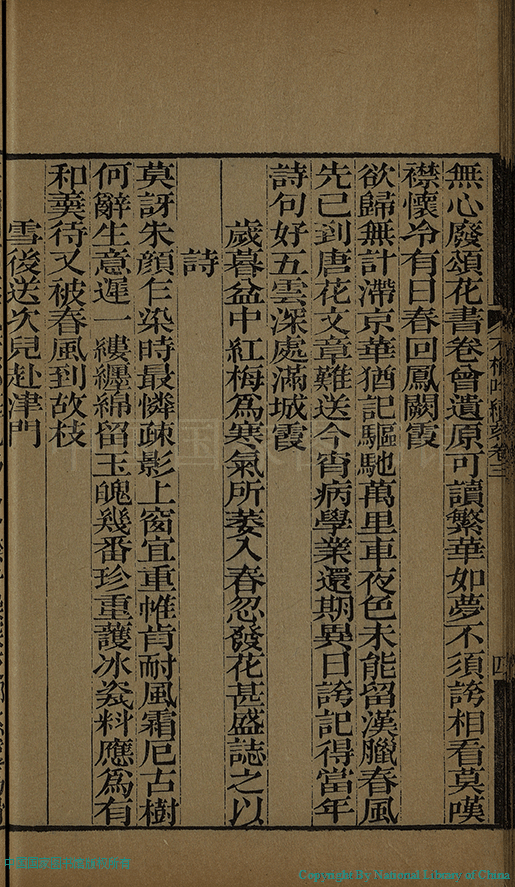 無心廢頌花書卷曾遺原可讀繁華如夢不須誇相看莫嘆
襟懷冷有日春回鳳闕霞
欲歸無計滯京華猶記驅馳萬里車夜色未能留漢臘春風
先已到唐花文章難送今宵病學業還期異日誇記得當年
詩句好五雲深處滿城霞
歲暮盆中紅梅為寒氣所萎入春忽發花甚盛誌之以
詩
莫訝朱顏仨染時最憐疎影上窗宜重帷肯耐風霜厄古樹
何辭生意遲一縷纏綿留玉魄幾番珍重護冰姿料應為有
和羹待又被春風到故枝
雪後送次兒赴津門
卷三
四
Copyright By National Library of China